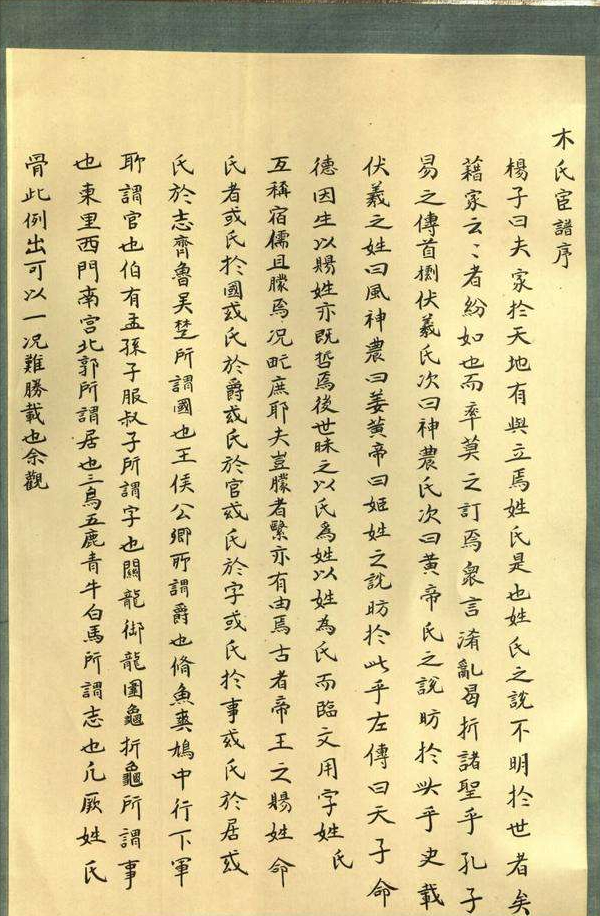 木氏宦譜序
楊子曰夫家扵天地有與立焉姓氏是也姓氏之説不明扵世者矣
藉家云〻者紛如也而率莫之訂焉衆言淆亂曷折諸聖乎孔子
易之傳首剟伏羲氏次曰神農氏次曰黄帝氏之説昉扵此乎史載
伏羲之姓曰風神農曰姜黄帝曰姬姓之説昉扵此乎左傳曰天子命
德因生以賜姓亦既哲焉後世昧之以氏為姓以姓為氏而臨文用字姓氏
互稱宿儒且朦焉况甿庶耶夫豈朦者繄亦有由焉古者帝王之賜姓命
氏者或氏扵國或氏於爵或氏於官或氏扵字或氏扵事或氏於居或
氏於志齊魯吴楚所謂國也王侯公卿所謂爵也脩魚爽鳩中行下軍
所謂官也伯有孟孫子服叔子所謂字也關龍御龍圉龜折龜所謂事
也東里西門南宫北郭所謂居也三烏五鹿青牛白馬所謂志也凡厥姓氏
骨此例出可以一况難勝載也余觀